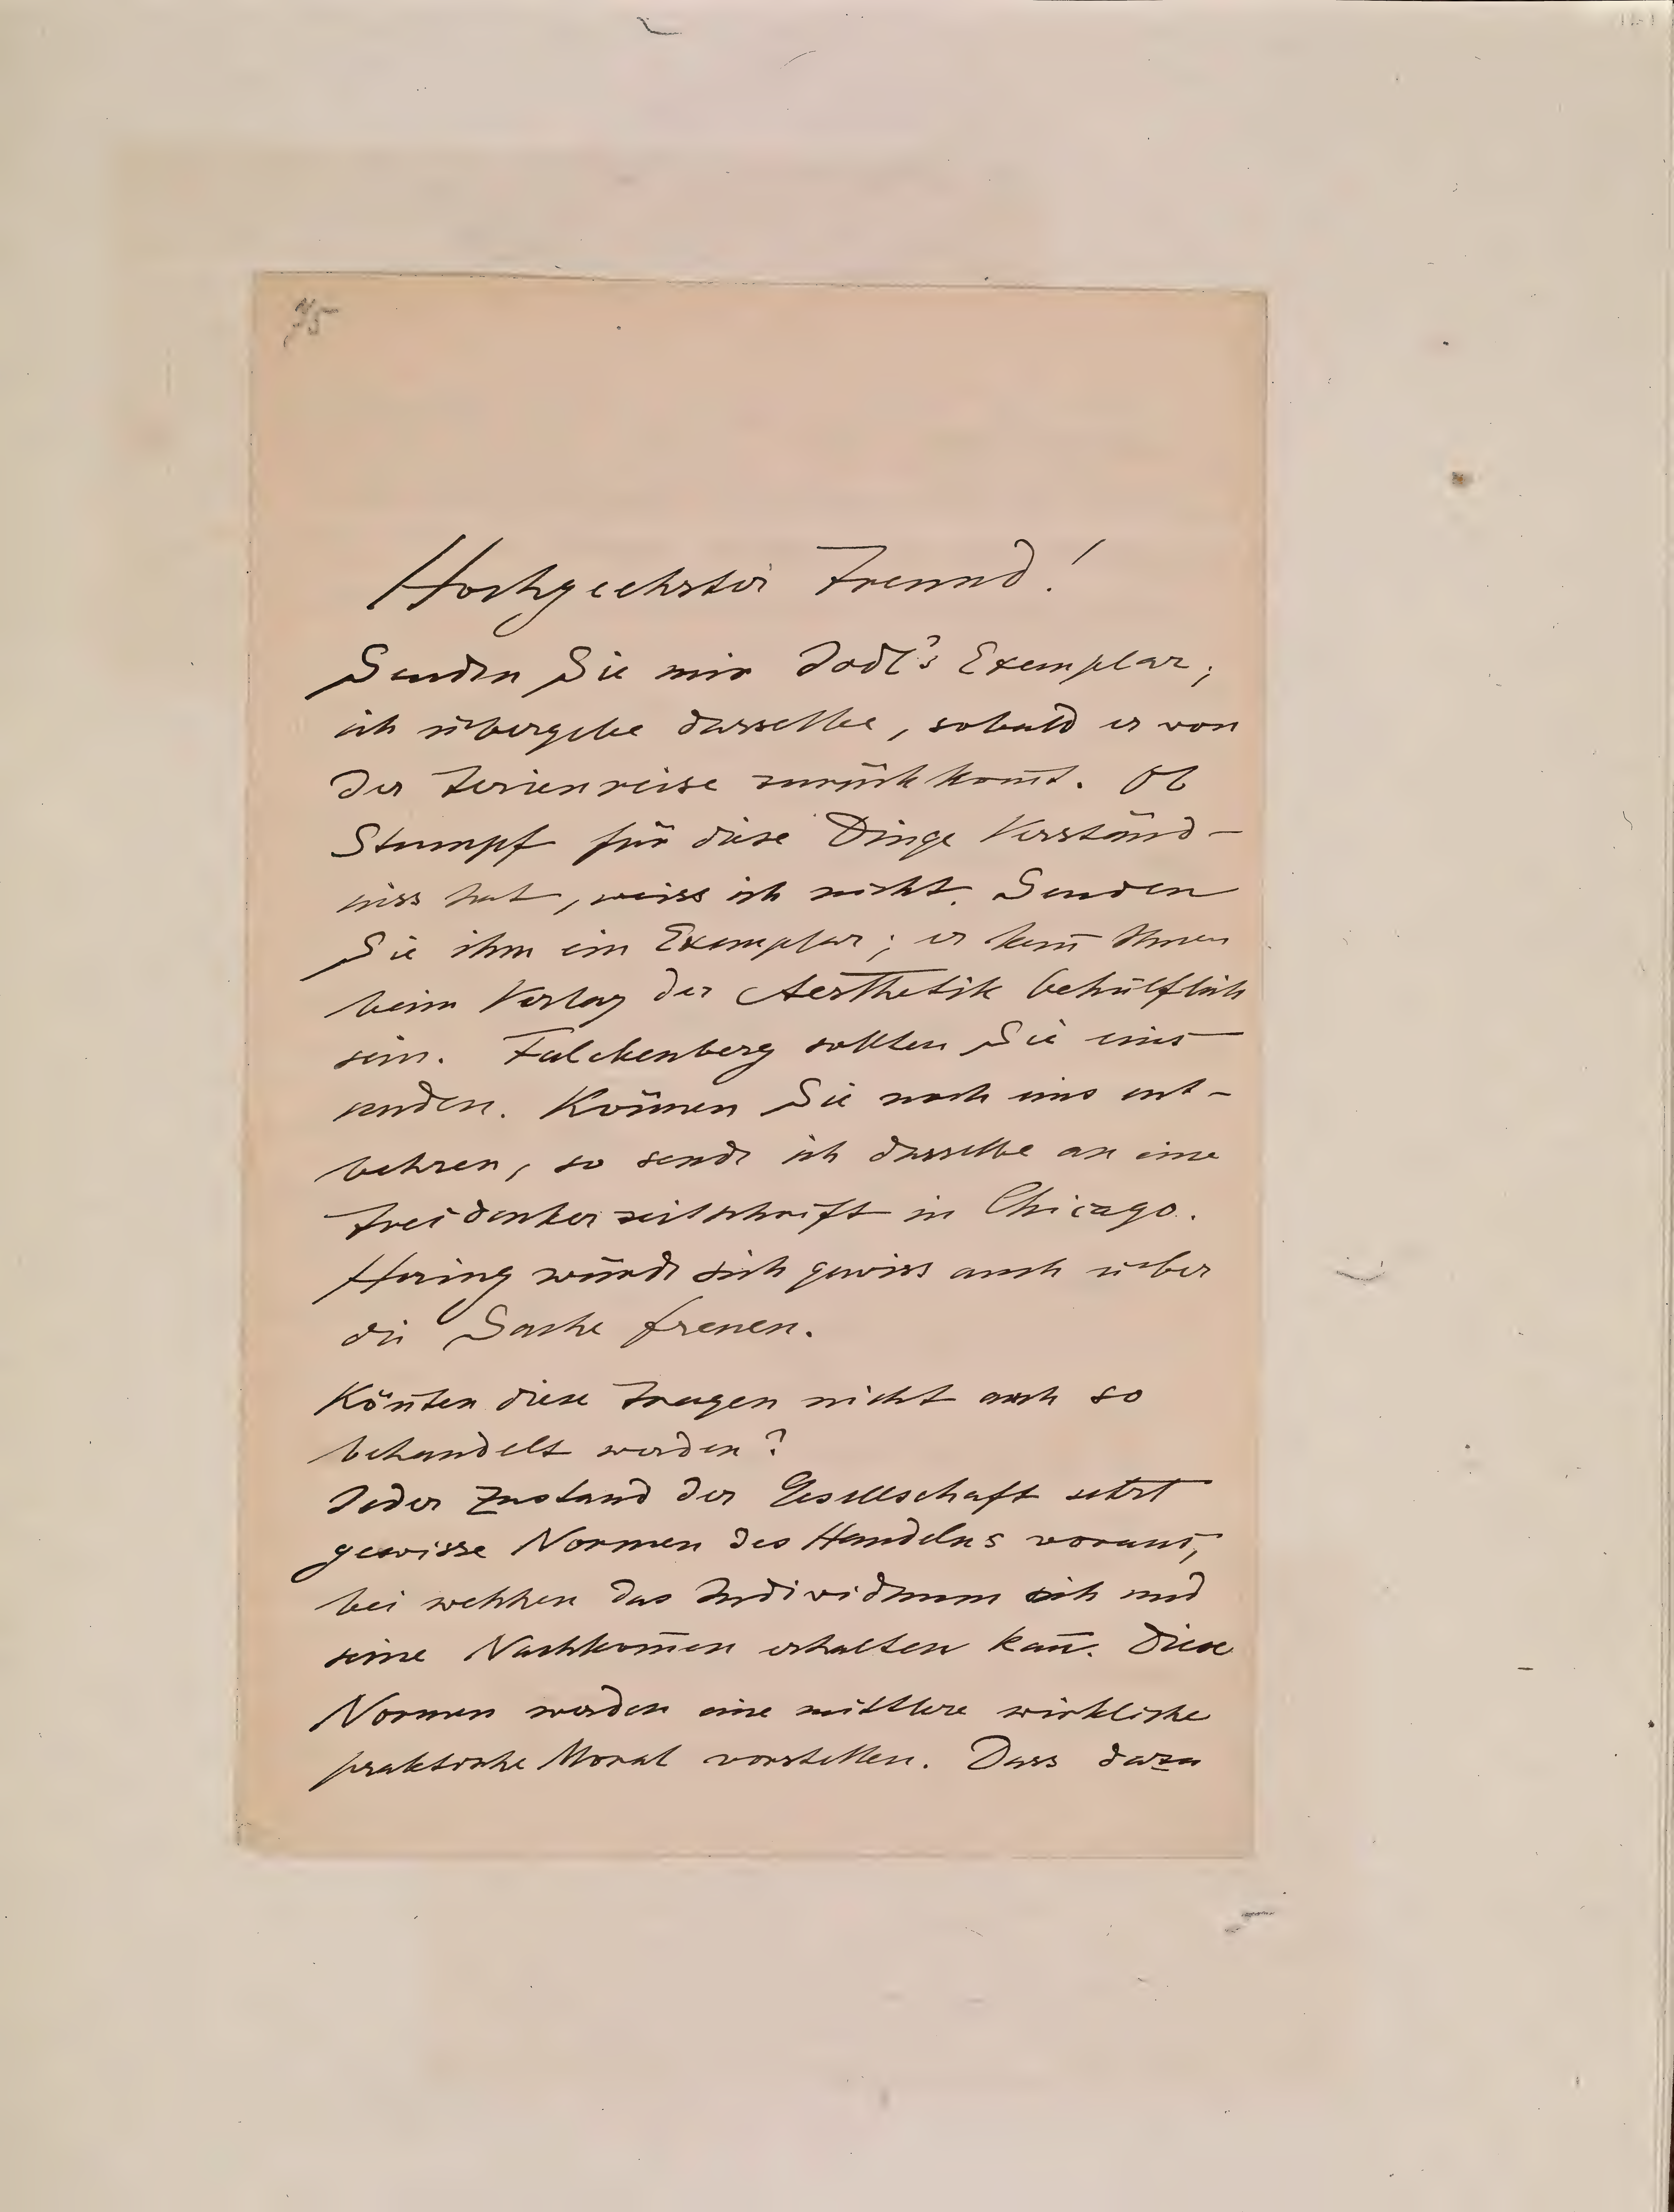 75
Hochgeehrter Freund!
Senden Sie mir Jodl's Exemplar;
ich übergebe dasselbe, sobald er von
der Ferienreise zurückkom̄t. Ob
Stumpf für diese Dinge Verständ-
niss hat, weiss ich nicht. Senden
Sie ihm ein Exemplar; er kan̄ Ihnen
beim Verlag der Aesthetik behülflich
sein. Falckenberg sollten Sie eins
senden. Kön̄en Sie noch eins ent-
behren, so sende ich dasselbe an eine
Freidenkerzeitschrift in Chicago.
Hering würde sich gewiss auch über
die Sache freuen.
Kön̄ten diese Fragen nicht auch so
behandelt werden?
Jeder Zustand der Gesellschaft setzt
gewisse Normen des Handelns voraus,
bei welchen das Individuum sich und
seine Nachkom̄en erhalten kan̄. Diese
Normen werden eine mittlere wirkliche
praktische Moral vorstellen. Dass dazu